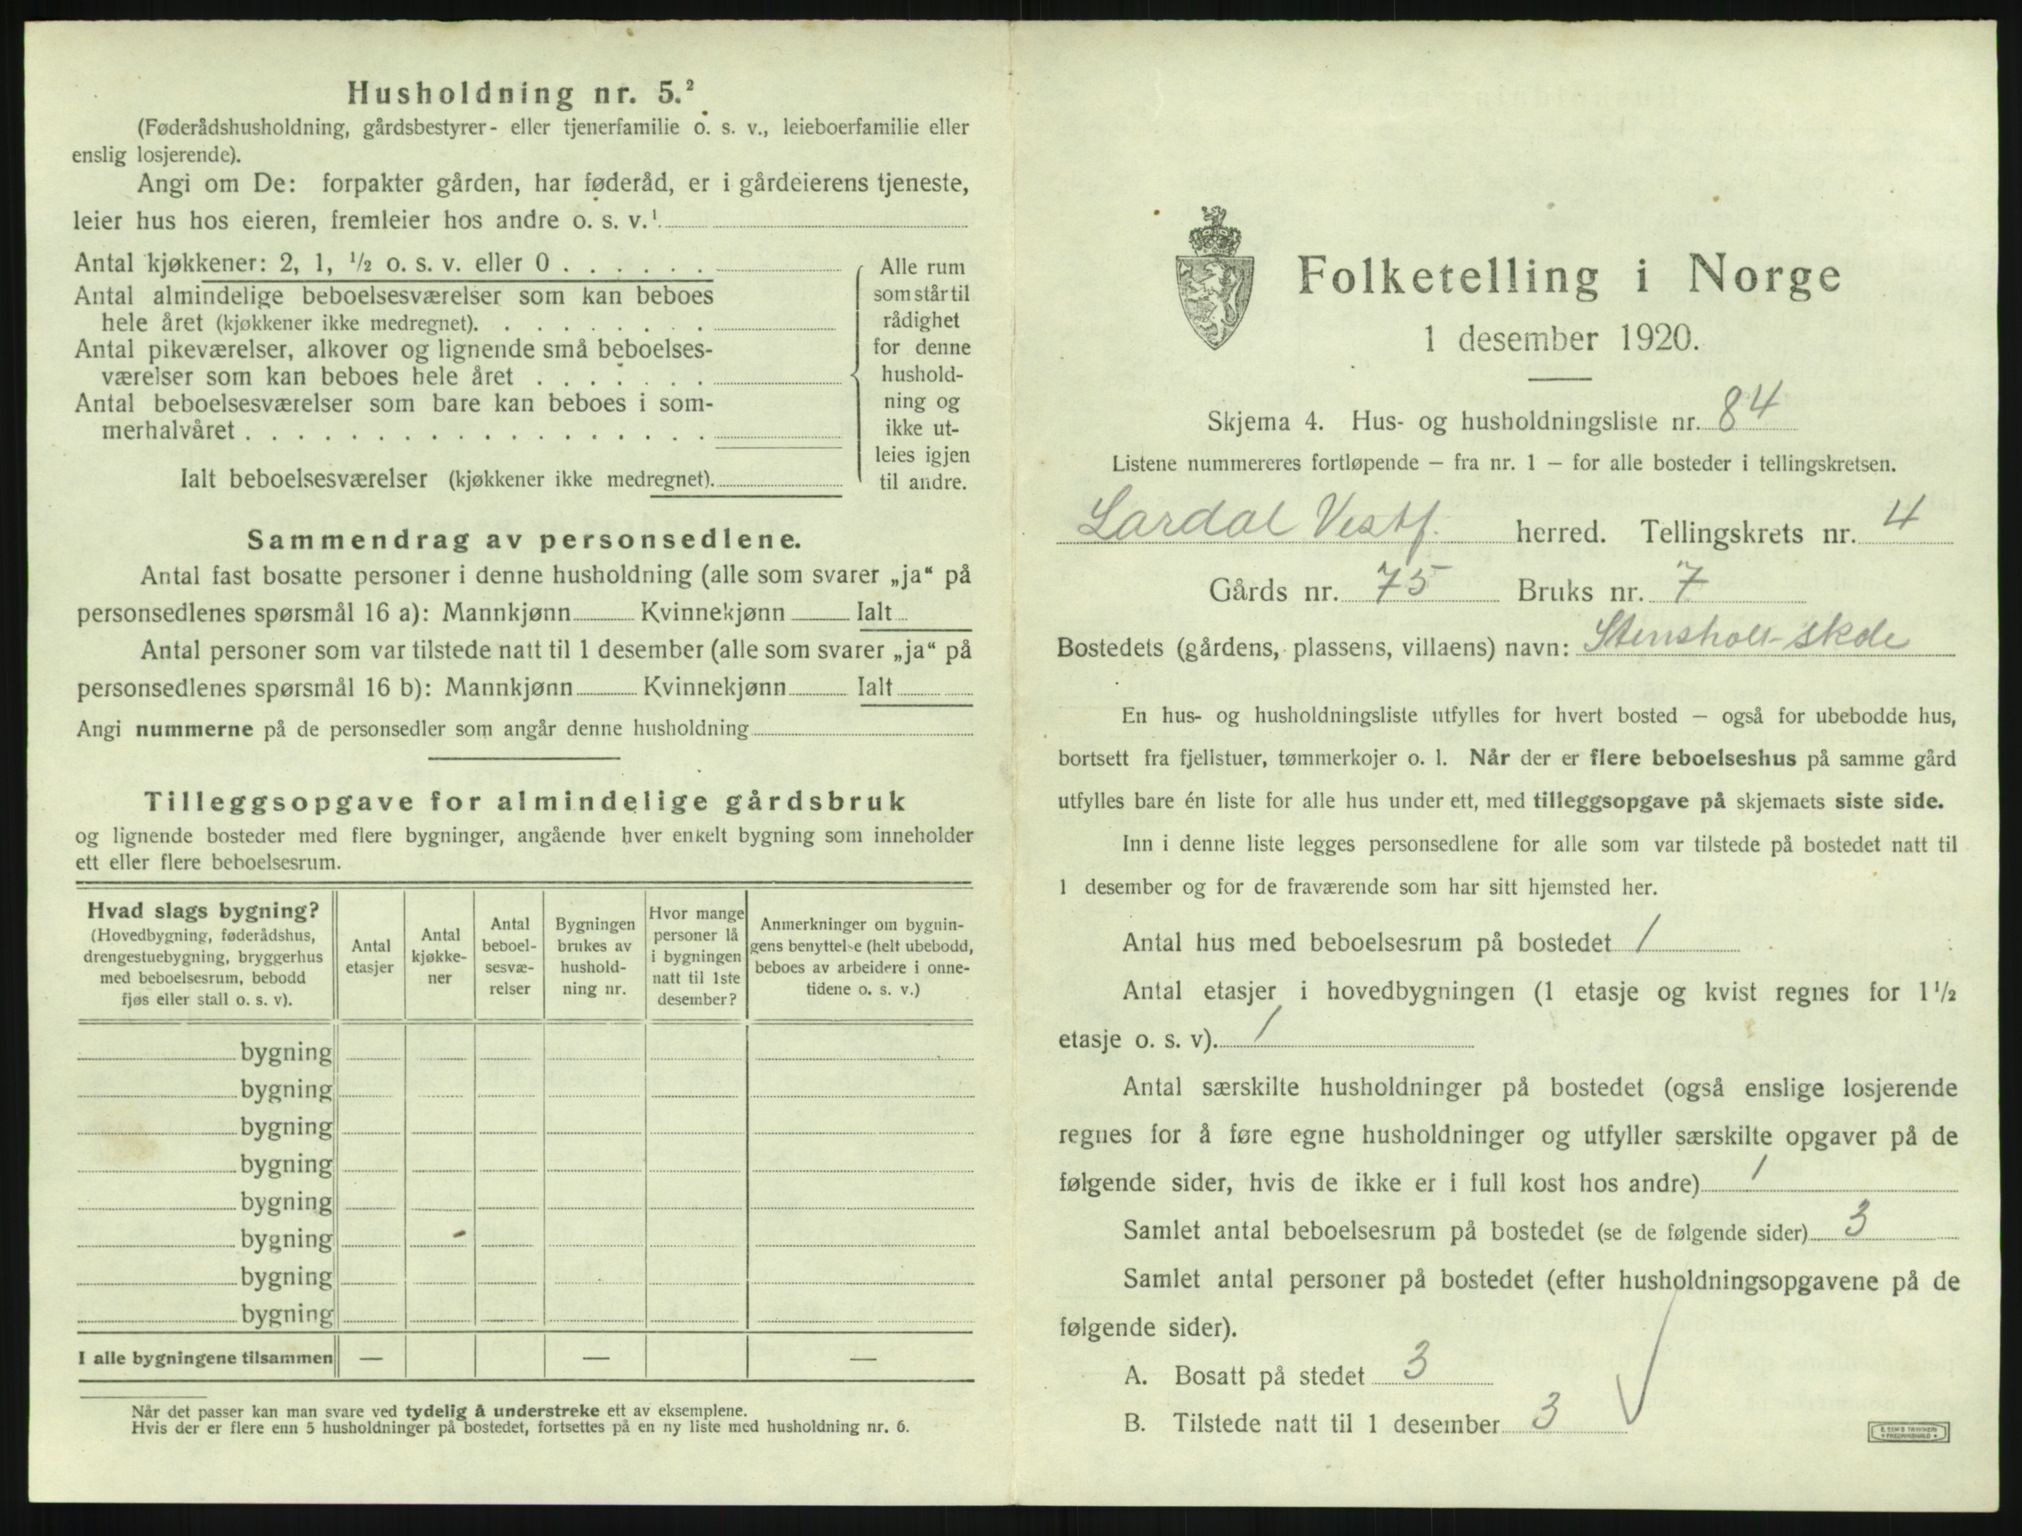 Husholdning nr. 5.²
(Føderådshusholdning, gårdsbestyrer- eller tjenerfamilie o. s. v., leieboerfamilie eller
enslig losjerende).
Angi om De: forpakter gården, har føderåd, er i gårdeierens tjeneste,
leier hus hos eieren, fremleier hos andre o. s. v.¹
Antal kjøkkener: 2, 1, ½ o. s. v. eller 0 . . . . . .
Antal almindelige beboelsesværelser som kan beboes
hele året (kjøkkener ikke medregnet). . . . . . . . .
Antal pikeværelser, alkover og lignende små beboelses-
værelser som kan beboes hele året . . . . . . .
Antal beboelsesværelser som bare kan beboes i som-
merhalvåret . . . . . . . . . . . . . . . . . .
Ialt beboelsesværelser (kjøkkener ikke medregnet).
Alle rum
som står til
rådighet
for denne
hushold-
ning og
ikke ut-
leies igjen
til andre.
Sammendrag av personsedlene.
Antal fast bosatte personer i denne husholdning (alle som svarer „ja“ på
personsedlenes spørsmål 16 a): Mannkjønn Kvinnekjønn Ialt
Antal personer som var tilstede natt til 1 desember (alle som svarer „ja“ på
personsedlenes spørsmål 16 b): Mannkjønn Kvinnekjønn Ialt
Angi nummerne på de personsedler som angår denne husholdning
Tilleggsopgave for almindelige gårdsbruk
og lignende bosteder med flere bygninger, angående hver enkelt bygning som inneholder
ett eller flere beboelsesrum.
Hvad slags bygning?
(Hovedbygning, føderådshus,
drengestuebygning, bryggerhus
med beboelsesrum, bebodd
fjøs eller stall o. s. v).
Antal
etasjer
Antal
kjøkke-
ner
Antal
beboel-
sesvæ-
relser
Bygningen
brukes av
hushold-
ning nr.
Hvor mange
personer lå
i bygningen
natt til 1ste
desember?
Anmerkninger om bygnin-
gens benyttelse (helt ubebodd,
beboes av arbeidere i onne-
tidene o. s. v.)
bygning
bygning
bygning
bygning
bygning
bygning
bygning
bygning
I alle bygningene tilsammen — — —
Når det passer kan man svare ved tydelig å understreke ett av eksemplene.
Hvis der er flere enn 5 husholdninger på bostedet, fortsettes på en ny liste med husholdning nr. 6.
Folketelling i Norge
1 desember 1920.
Skjema 4. Hus- og husholdningsliste nr. 84
Listene nummereres fortløpende — fra nr. 1 — for alle bosteder i tellingskretsen.
Lardal Vestf. herred. Tellingskrets nr. 4
Gårds nr. 75 Bruks nr. 7
Bostedets (gårdens, plassens, villaens) navn: Stensholt skole
En hus- og husholdningsliste utfylles for hvert bosted — også for ubebodde hus,
bortsett fra fjellstuer, tømmerkojer o. l. Når der er flere beboelseshus på samme gård
utfylles bare én liste for alle hus under ett, med tilleggsopgave på skjemaets siste side.
Inn i denne liste legges personsedlene for alle som var tilstede på bostedet natt til
1 desember og for de fraværende som har sitt hjemsted her.
Antal hus med beboelsesrum på bostedet 1
Antal etasjer i hovedbygningen (1 etasje og kvist regnes for 1½
etasje o. s. v). 1
Antal særskilte husholdninger på bostedet (også enslige losjerende
regnes for å føre egne husholdninger og utfyller særskilte opgaver på de
følgende sider, hvis de ikke er i full kost hos andre) 1
Samlet antal beboelsesrum på bostedet (se de følgende sider) 3
Samlet antal personer på bostedet (efter husholdningsopgavene på de
følgende sider).
A. Bosatt på stedet 3
B. Tilstede natt til 1 desember 3